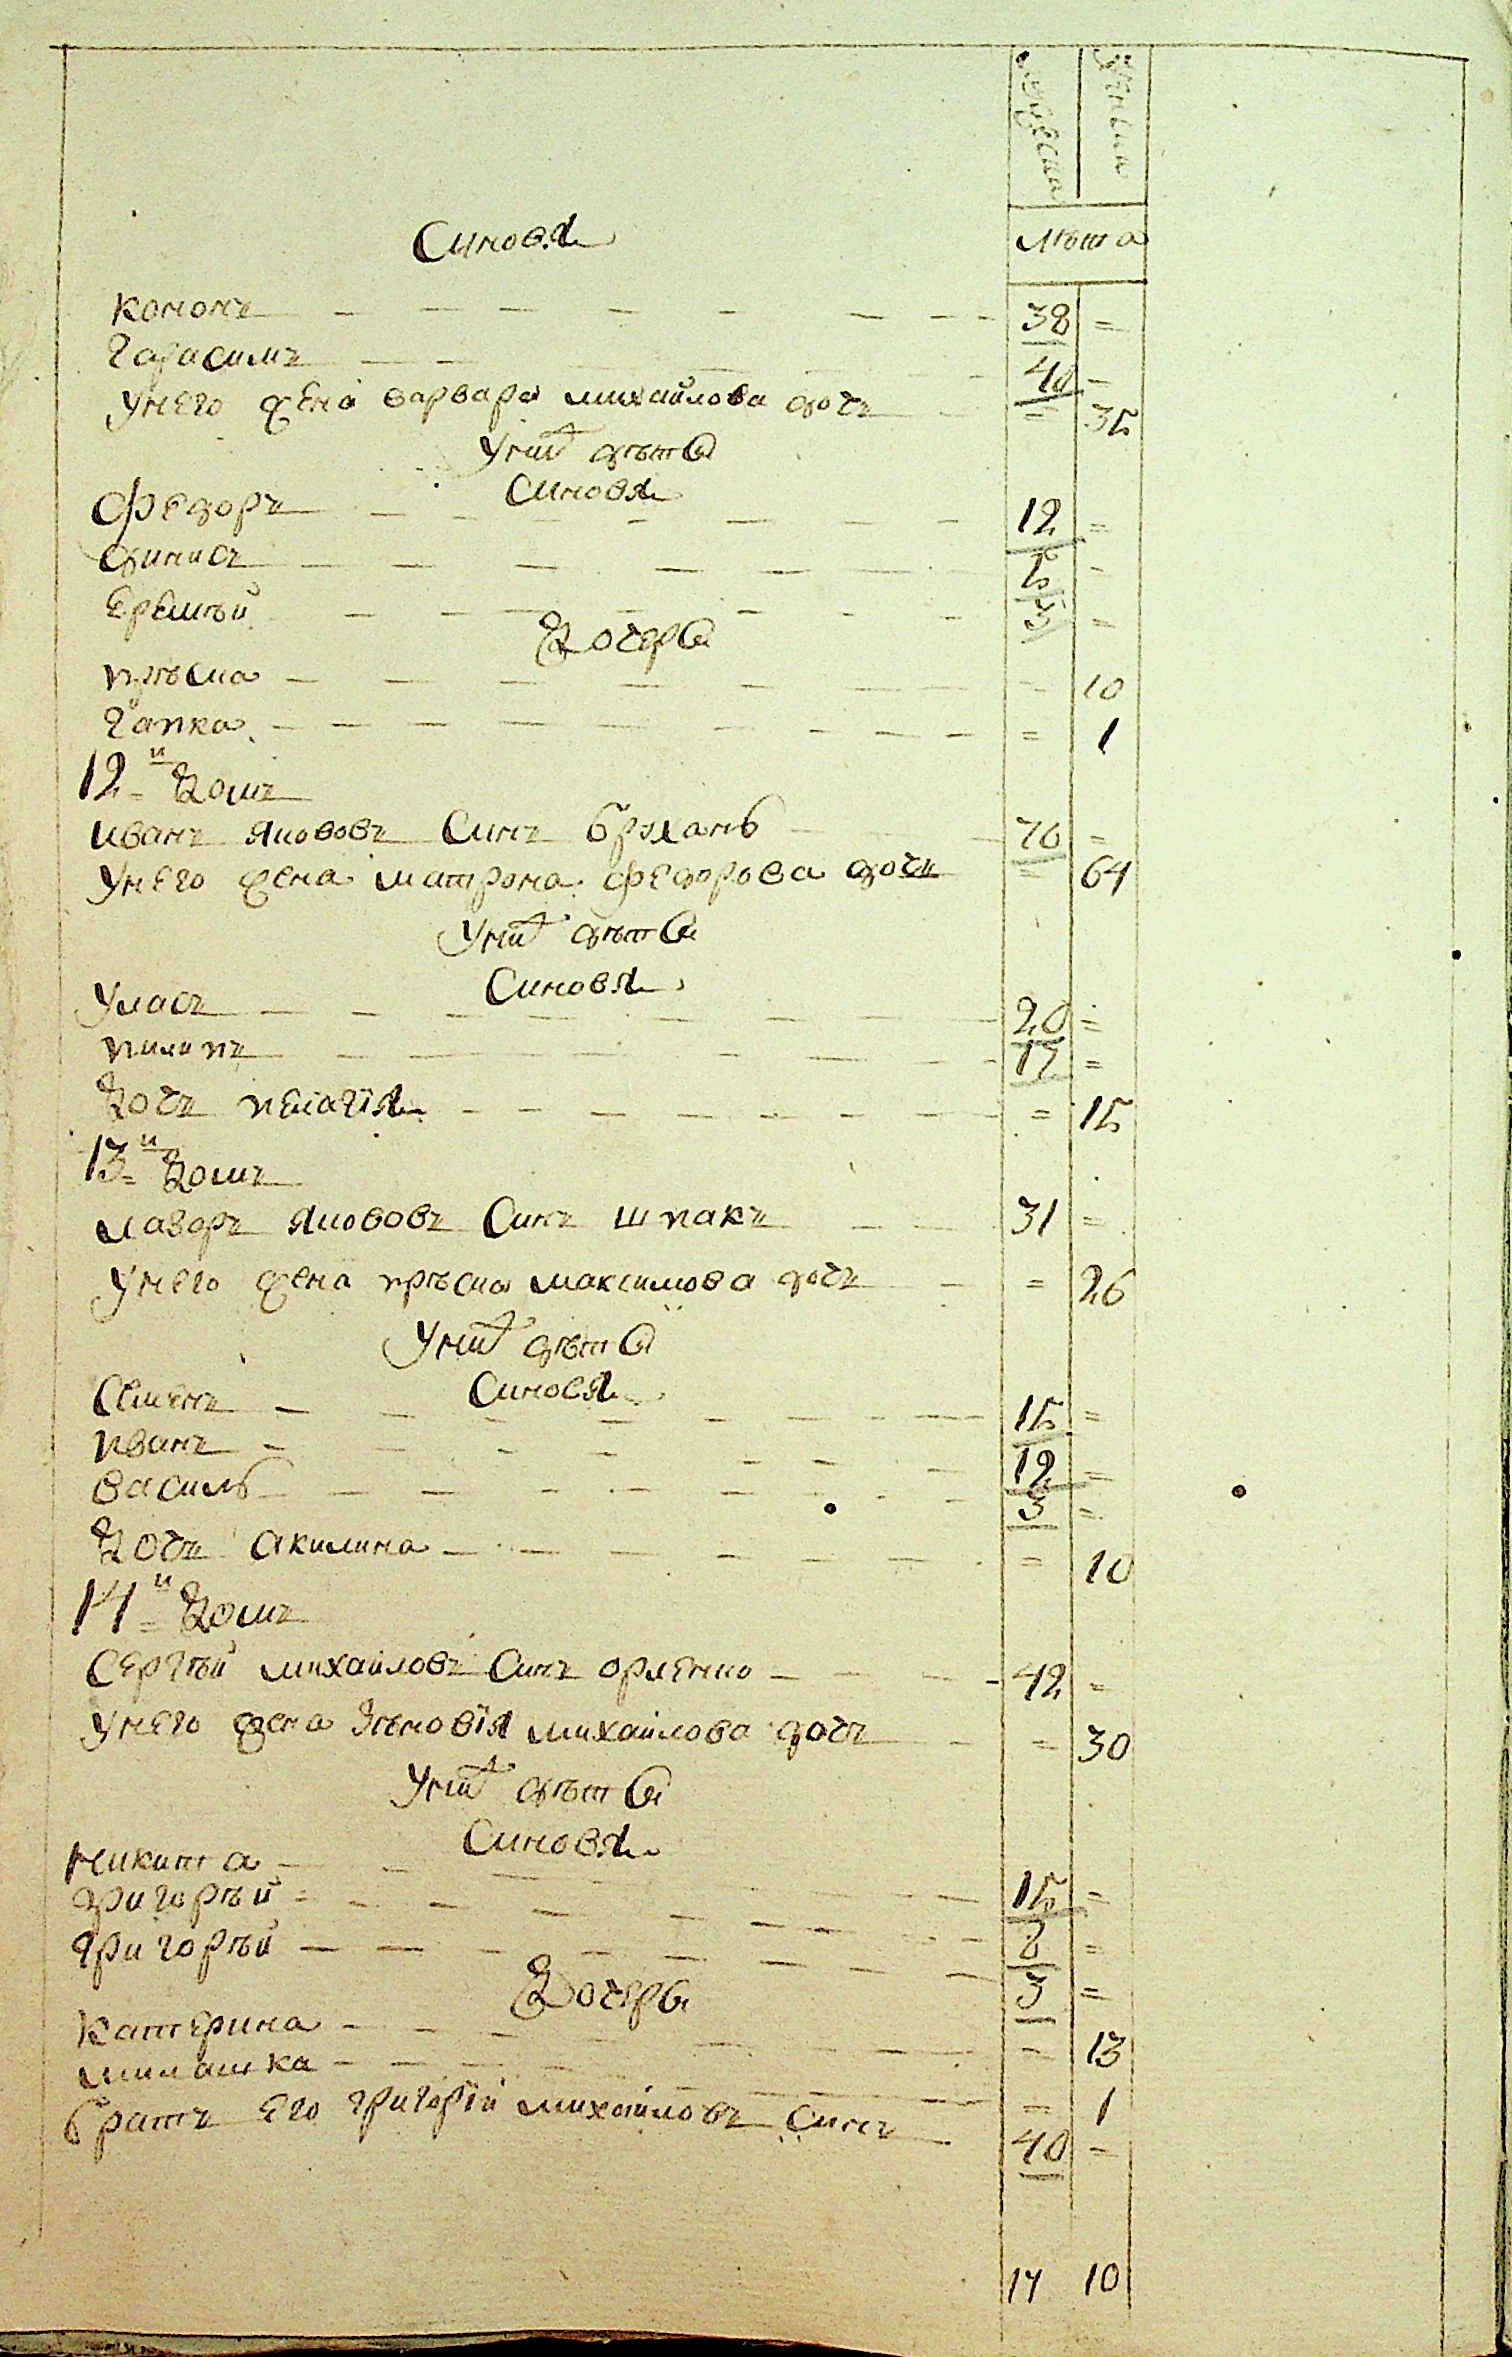 мужеска женска
лѣта
Синовя
кононъ 38 =
Гарасимъ 40 =
Унего жена варвара михайлова дочъ = 35
Унихъ дѣти
Синовя
Федоръ 12 =
динисъ 5 =
Еремѣй 3 =
Дочери
прѣсиа = 10
Гапка = 1
12й Домъ
иванъ якововъ Синъ брухань 70 =
Унего жена матрона федорова дочъ = 64
Унихъ дѣти
Синовя
Уласъ 20 =
пилипъ 17 =
Дочъ пелагія = 15
13й Домъ
лазоръ якововъ Синъ шпакъ 31 =
Унего жена прѣсиа максимова дочъ = 26
Унихъ дѣти
Синовя
Семенъ 15 =
иванъ 12 =
василь 3 =
Дочъ акилина = 10
14й Домъ
Сергѣй михайловъ Синъ орленко 42 =
Унего жена Зѣновія михайлова дочъ = 30
Унихъ дѣти
Синовя
никита 15 =
григорѣй 8 =
григорѣй 3 =
Дочери
катерина = 13
милашка = 1
братъ Его григорій михайловъ Синъ 40 =
17 10